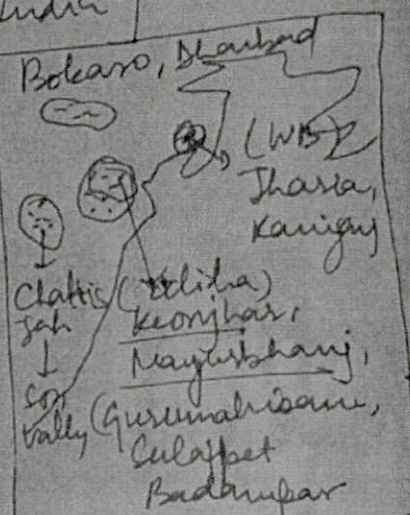 India
Bokaro, Dhanbad
(WB)
Jharia,
Raniganj
Chattis
gah
(Odisha)
Keonjhar,
Mayurbhanj,
Son
Vally
(Gurumahisani,
Sulaipet
Badampar